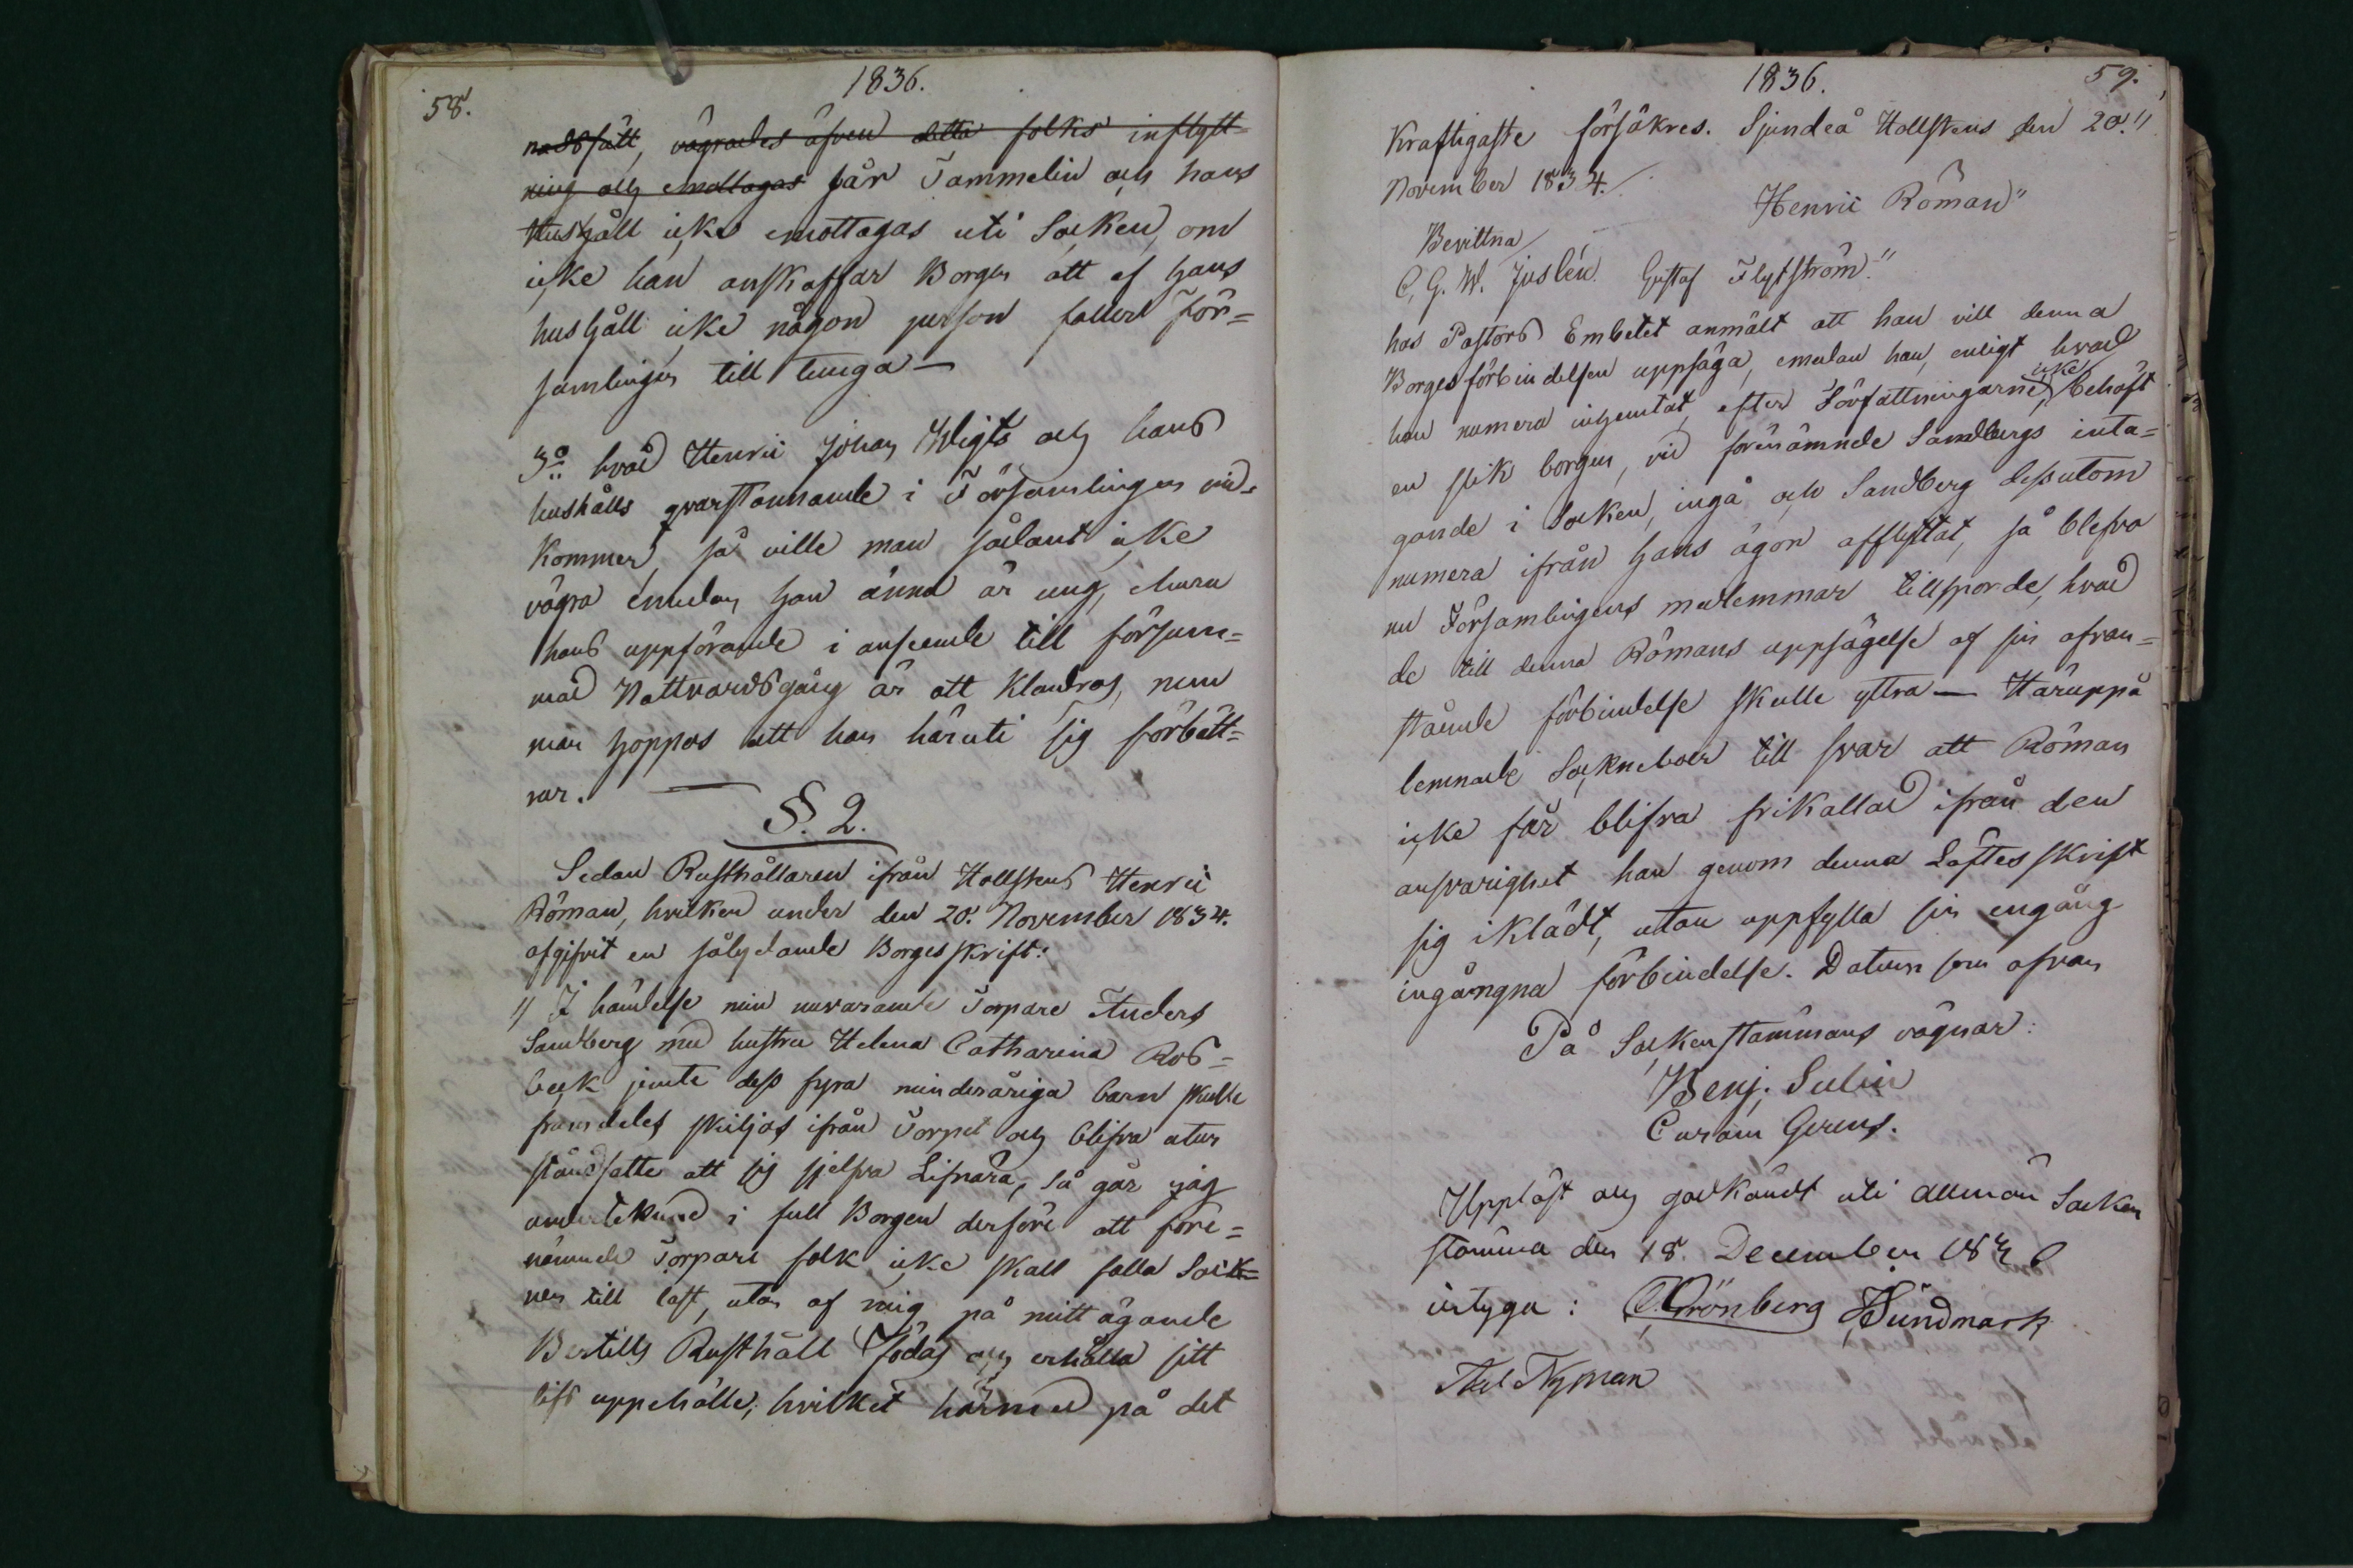 58.
1836.
nadssätt, vägrades äfven detta folks inflytt=
ning och emottagas får Tammelin och hans
Hushåll icke emottagas uti Socken, om
icke han anskaffar Borgen att af hans
hushåll icke någon person faller För=
samlingen till tunga —
3o hvad Henric Johan Wigts och hans
hushålls qvarstannande i Församlingen vid=
kommer, så ville man sådant icke
vägra emedan han ännu är ung, ehuru
hans uppförande i anseende till försum=
mad Nattvardsgång är att klandras, men
man hoppas att han häruti sig förbätt=
rar. —
§. 2.
Sedan Rusthållaren ifrån Hollstens Henric
Röman, hvilken under den 20. November 1834.
afgifvit en sålydande Borgesskrift:
"I händelse min nuvarande Torpare Anders
Sandberg med hustru Helena Catharina Ros=
beck jemte dess fyra minderåriga barn skulle
framdeles skiljas ifrån Torpet och blifva utur
ståndsatte att sig sjelfva Lifnära, så går jag
undertecknad i full Borgen derföre att före=
nämnde Torpare folk icke skall falla Sock=
nen till last, utan af mig på mitt ägande
Bertills Rusthåll födas och erhålla sitt
lifs uppehälle, hvilket härmed på det
1836.
59.
Kraftigaste försäkres. Sjundeå Hollstens den 20."
November 1834.
Henric Röman"
Bevittna
C. G. W. Juslén. Gustaf Flytström."
hos Pastors Embetet anmält att han vill denna
Borgesförbindelsen uppsäga, emedan han, enligt hvad
han numera inhemtat, efter Författningarne, icke behöft
en slik borgen, vid förenämnde Sandbergs inta=
gande i Socken, ingå och Sandberg dessutom
numera ifrån hans ägor afflyttat, så blefvo
nu Församlingens medlemmar tillsporde, hvad
de till denna Römans uppsägelse af sin ofvan=
stående förbindelse skulle yttra — Häruppå
lemnade Sockneboer till svar att Röman
icke får blifva frikallad ifrån den
ansvarighet han genom denna Löftesskrift
sig iklädt, utan uppfylla sin engång
ingångna förbindelse. Datum som ofvan
På Sockenstämmans vägnar:
Benj. Selin
Curam Gerens.
Uppläst och godkändt uti allmän Socken
stämma den 18. December 1836
intyga: C. Grönberg H Sundmark
Nyman